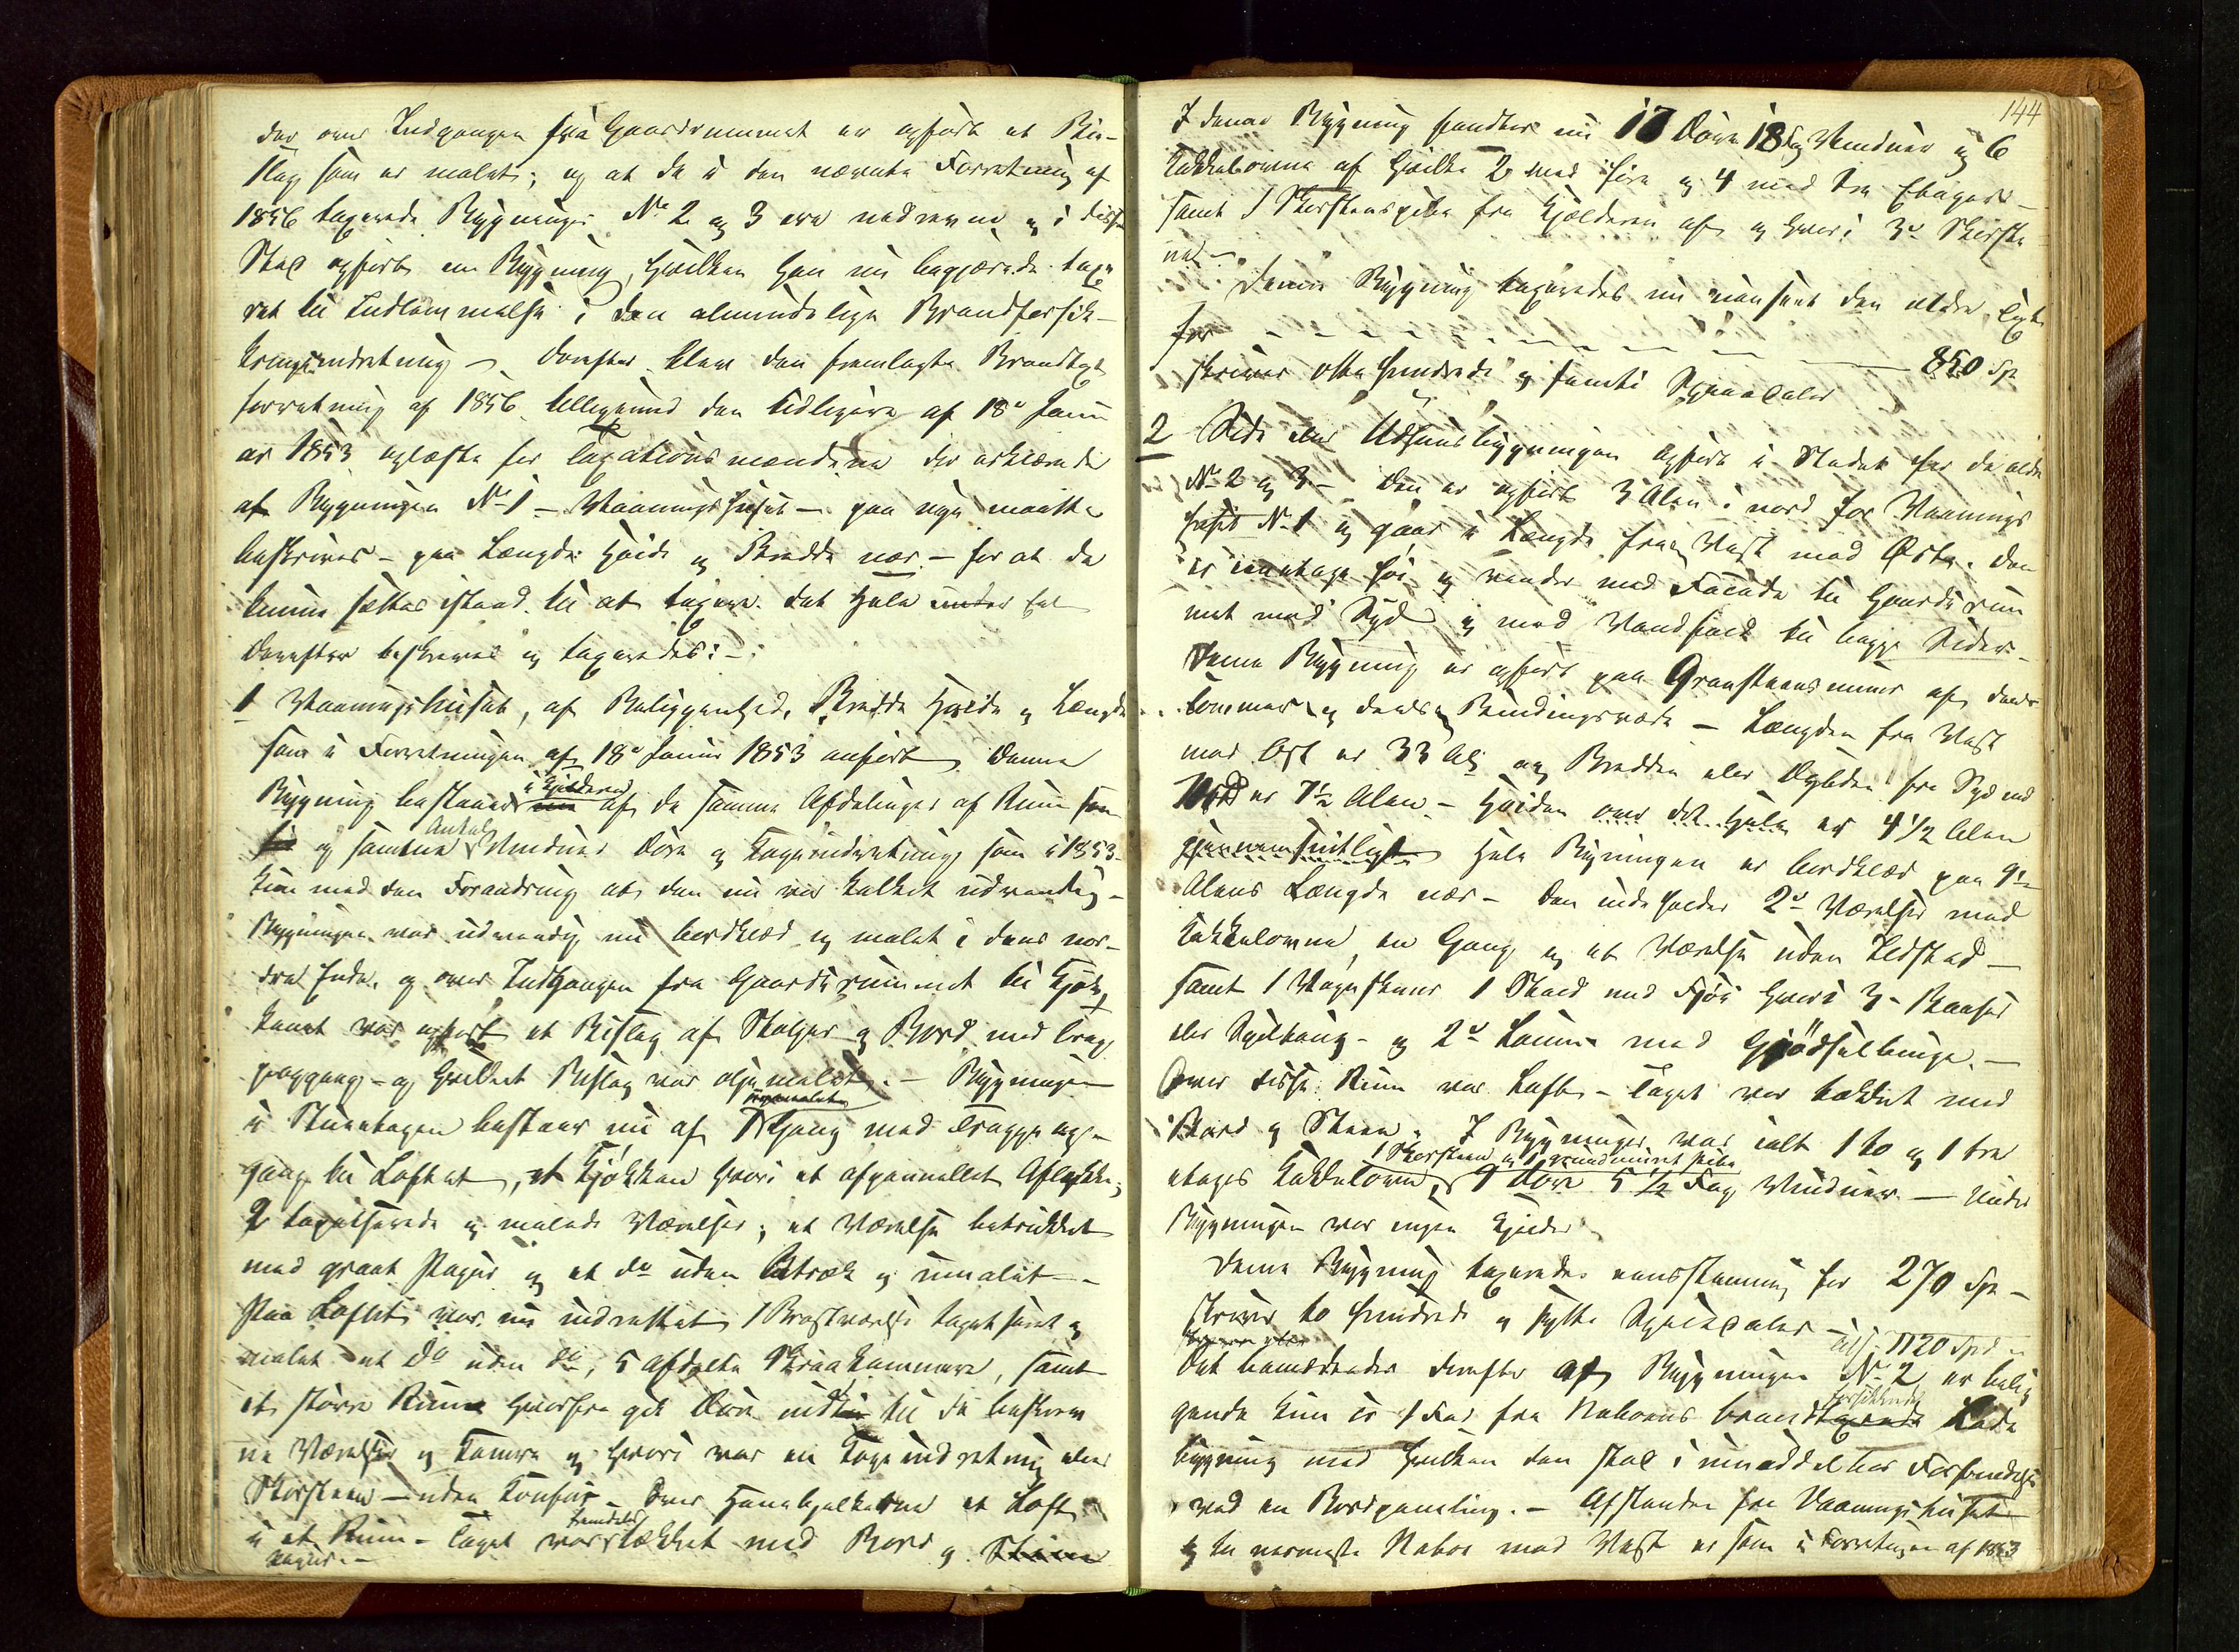 der over Indgangen fra Gaardsrummet er opført et Bi-
slag som er malet; og at de i den nævnte Forretning af
1856 taxerede Bygninger No 2 og 3 ere nedrevne og i disses
Sted opført en Bygning, hvilken han nu begjærede taxe
ret til Indlemmelse i den almindelige Brandforsik-
kringsindretning – Derefter blev den fremlagte Brandtaxt
forretning af 1856 tilligemed den tidligere af 18de Janu
ar 1853 oplæste for Taxationsmændene der erklærede
at Bygningen No 1 – Vaaningshuset – paa nye maatte
beskrives – paa Længde Høide og Bredde nær – for at de
kunne sættes istand til at taxere det Hele
Derefter beskreves og taxeredes: –
1 Vaaningshuset, af Beliggenhed, Bredde Høide og Længde
som i Forretningen af 18de Januar 1853 anført. Denne
i Kjelderen
Bygning bestaaer af de samme Afdelinger af Rum som
Antal
og samme Vinduer Døre og Tagindretning som i 1853
kun med den Forandring at den nu var kalket udvendig –
Bygningen var udvendig nu bordklæd og malet i dens nor-
dre Ende, og over Indgangen fra Gaardsrummet til Kjøk
kenet var opført et Bislag af Stolper og Bord med Trap
peopgang – og hvilket Bislag var oljemalet. – Bygningen
i Stueetagen bestaaer nu af 1 Gang med Trappeop-
gang til Loftet, et Kjøkken hvori et afpanellet Aflukke;
2 tapetserede og malede Værelser; et Værelse betrukket
med graat Papir og et do uden Betræk og umalet –
Paa Loftet var nu indrettet 1 Kvistværelse tapetseret og
malet et do uden do, 5 afdelte Skraakammere, samt
et større Rum hvorfra gik Døre ind til de beskrev
ne Værelser og Kamre og hvori var en Tagindretning eller
Skorsteen – uden Komfur – Over Hanebjelkerne et Loft
i et Rum – Taget var tækket med Bord og Steen
144
I denne Bygning fandtes nu 17 Døre 18 Fag Vinduer og 6
Kakkelovne af hvilke 2 med fire og 4 med tre Etager –
samt 1 Skorstenspibe fra Kjælderen af og hvori 3de Skorste
ne –
Denne Bygning taxeredes nu uanseet den ældre Taxt
for – – – – – – – – – – 850 Sp
skriver otte hundrede og femti Speciedaler
2 Side eller Udhuusbygningen opført i Stedet for de ældre
No 2 og 3 – Den er opført 3 Alen i nord for Vaanings
huset No 1 og gaar i Længde fra Vest mod Øst. Den
er een etage høi og vender med Facade til Gaardsrum
met mod Syd og med Vandfald til begge Sider –
Denne Bygning er opført paa Graasteensmuur af dens
Tømmer og deels Bindingsværk – Længden fra Vest
mod Øst er 33 Al og Bredden eller Dybden fra Syd mod
Nord er 7½ Alen – Høiden over det Hele er 4 1/2 Alen
gjennemsnitligt Hele Bygningen er bordklæd paa 9½
Alens Længde nær – Den indeholder 2de Værelser med
Kakkelovne, en Gang og et Værelse uden Ildsted –
samt 1 Vognskuur 1 Stald med Fjøs hvori 3 Baaser
eller Spiltoug – og 2de Rumme med Gjødselbinge. –
Over disse Rum var Loft – Taget var tækket med
Bord og Steen. I Bygningen var ialt 1 to og 1 tre
1 Skorsteen og 1 grundmuret Pibe
etages Kakkelovn, 9 Døre 5 1/2 Fag Vinduer – Under
Bygningen var ingen Kjelder
Denne Bygning taxeredes eensstemmig for 270 Spe –
skriver to hundrede og sytti Speciedaler –
1120 Spd
Det bemærkedes derefter at Bygningen No 2 er belig
forsikkrede
gende kun 1 Fod fra Naboens brand Lade
bygning med hvilken den staaer i umiddelbar Forbindelse
ved en Bordpaneling. – Afstanden fra Vaaningshuset
til nærmeste Naboe mod Vest er som i Forretningen af 1853